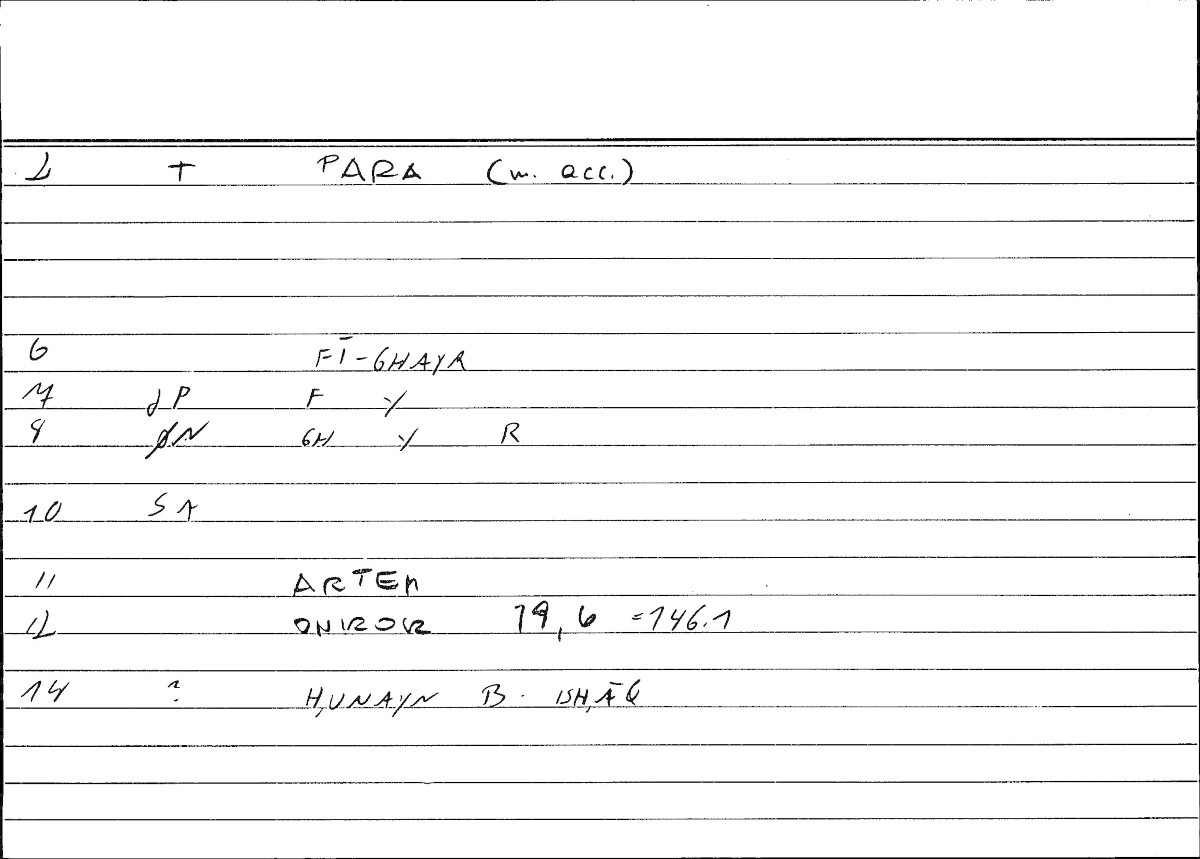 2 + PARA (m. acc.)
6 FĪ-GHAYR
7 dP F Y
8 N GH Y R
10 SA
11 ARTEM
12 ONIROCR 19,6 =146.1
14 ? H,UNAYN B. ISH,ĀQ